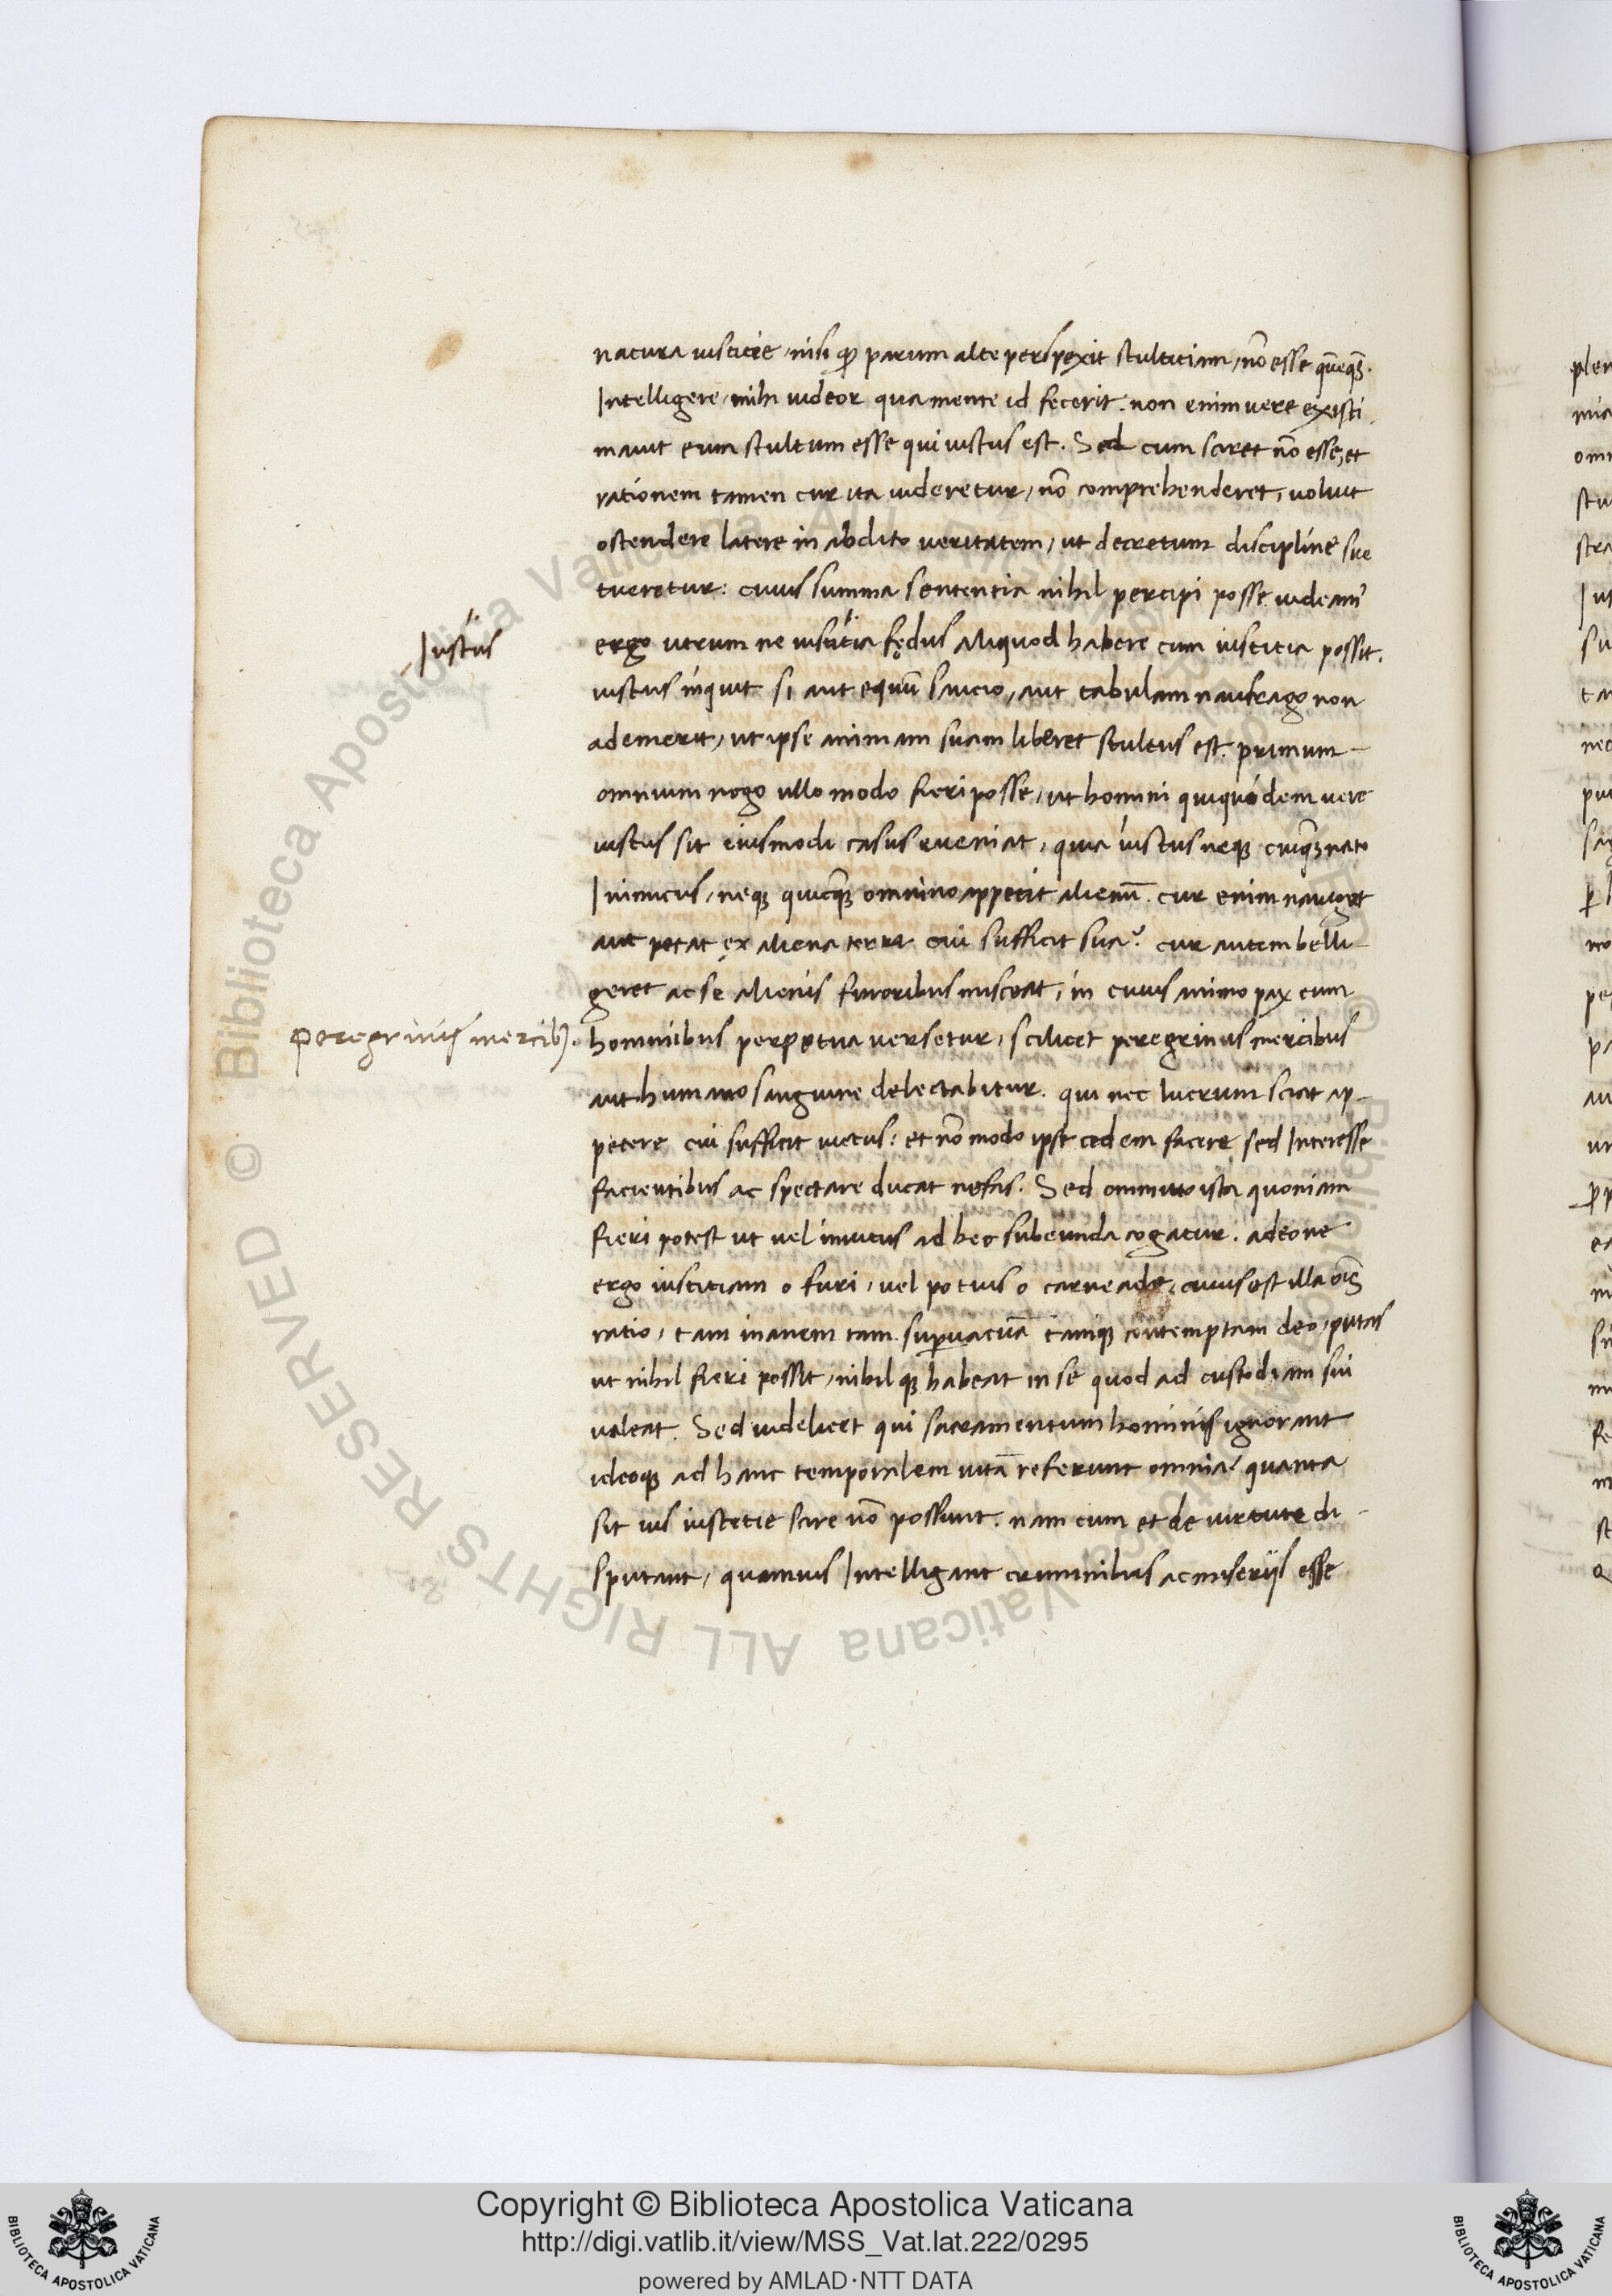 natura iusticie, nisi ꝙ parum alte perspexit stulticiam, nō esse quēqꝫ.
Intelligere, mihi uideor qua mente id fecerit. non enim uere existi
mauit eum stultum esse qui iustus est. Sed cum sciret nō esse, et
rationem tamen cur ita uideretur, nō comprehenderet, uoluit
ostendere latere in abdito veritatem, ut decretum discipline sue
tueretur: cuius summa sententia nihil percipi posse. uideam̄
Iustus
ergo utrum ne iusticia fędus aliquod habere cum iusticia possit.
iustus inquit si aut equū saucio, aut tabulam naufrago non
ademerit, ut ipse animam suam liberet stultus est. primum
omnium nego ullo modo fieri posse, ut homini qui quidem uere
iustus sit eiusmodi casus eueniat, quia iustus neqꝫ cuiqꝫ nato
Inimicus, neqꝫ quicqꝫ omnino appetit alienū. cur enim nauiget
aut petat ex aliena terra cui sufficit sua? cur autem belli
geret ac se alienis furoribus misceat, in cuius animo pax cum
peregrinis mercibꝫ.
hominibus perpetua uersetur, scilicet peregrinis mercibus
aut humano sanguine delectabitur. qui nec lucrum sciat ap
petere cui sufficit uictus: et nō modo ipse cedem facere, sed Interesse
facientibus ac spectare ducat nefas. Sed ommitto ista quoniam
fieri potest ut uel inuitus ad hec subeunda cogatur. adeone
ergo iusticiam o furi, uel potius o carneade, cuius est illa oīs
ratio, tam inanem tam superuacuā tamqꝫ contemptam deo, putas
ut nihil fieri possit, nihil qꝫ habeat in se quod ad custodiam sui
ualeat. Sed uidelicet qui sacramentum hominis ignorant
ideoqꝫ ad hanc temporalem uitā referunt omnia, quanta
sit uis iusticie scire nō possunt. nam cum et de uirtute di
sputant, quamuis Intelligant erumnibus ac miseriis esse
Copyright © Biblioteca Apostolica Vaticana
http://digi.vatlib.it/view/MSS_Vat.lat.222/0295
powered by AMLAD·NTT DATA